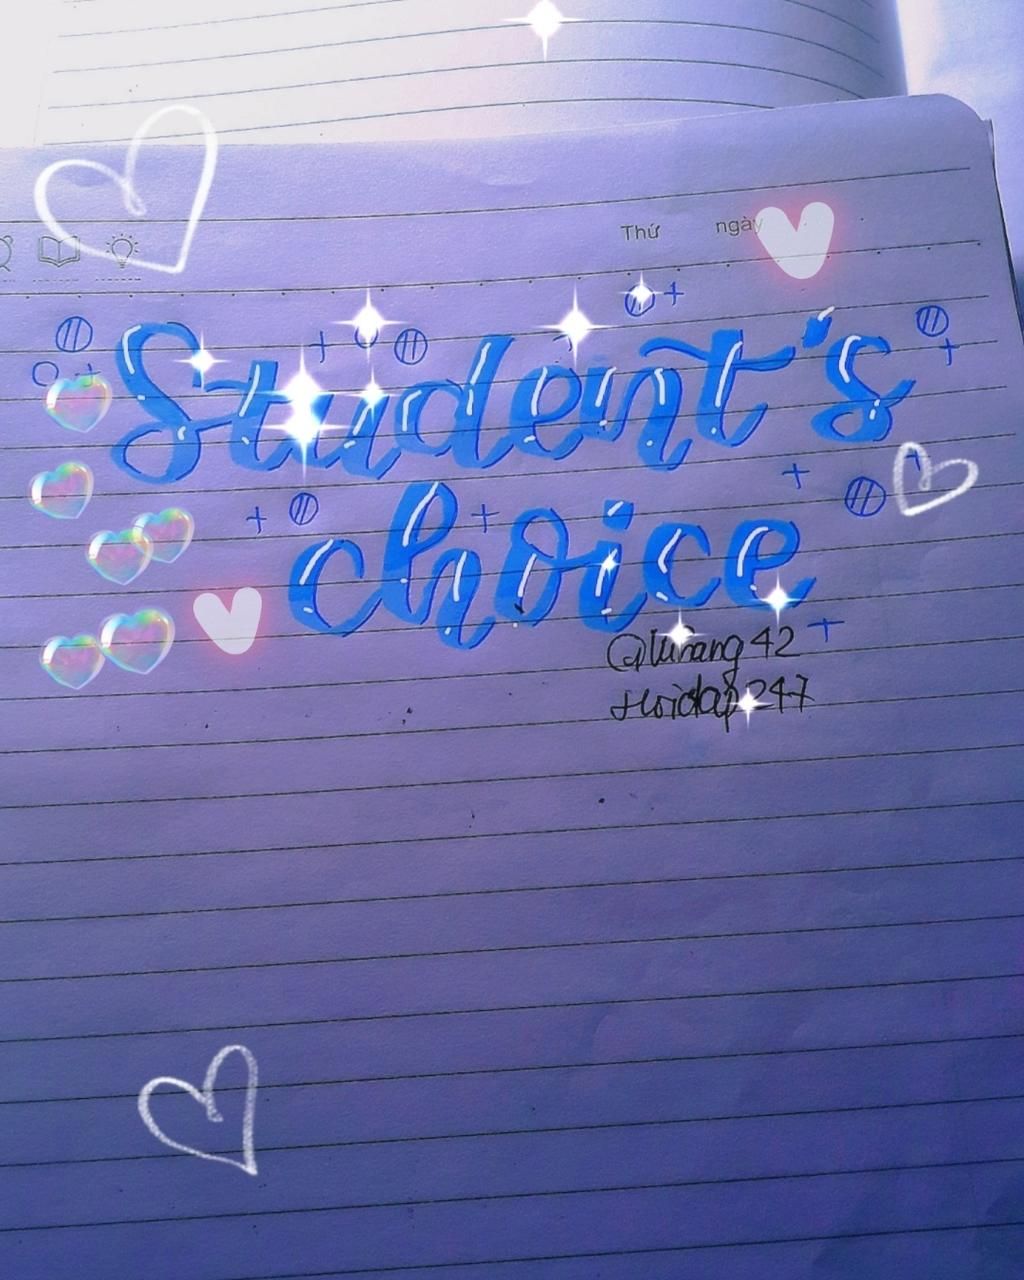 Thứ ngày
Student's
choice
Hoidap247